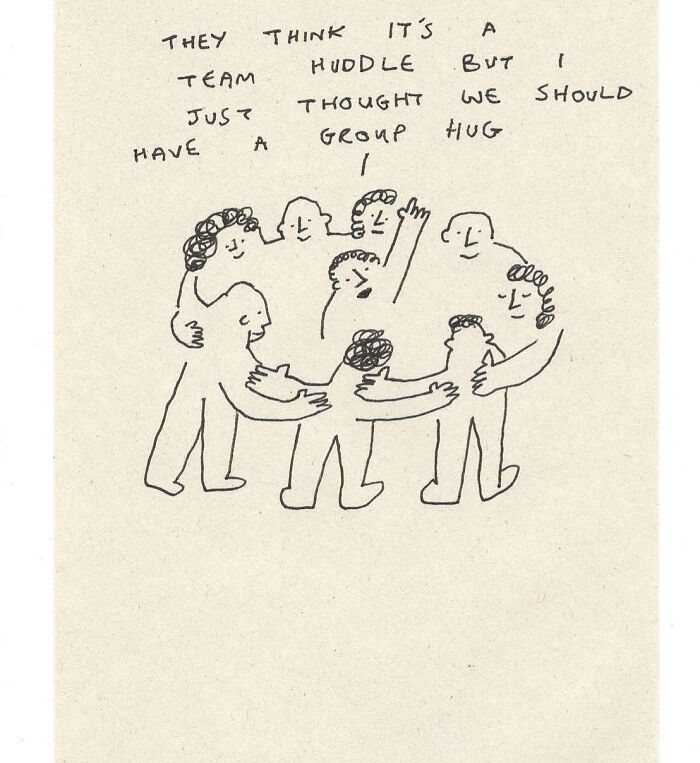 THEY THINK IT'S A
TEAM HUDDLE BUT I
JUST THOUGHT WE SHOULD
HAVE A GROUP HUG